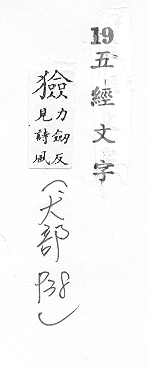 19五經文字
獫
力劒反
見詩風
(犬部 P38)